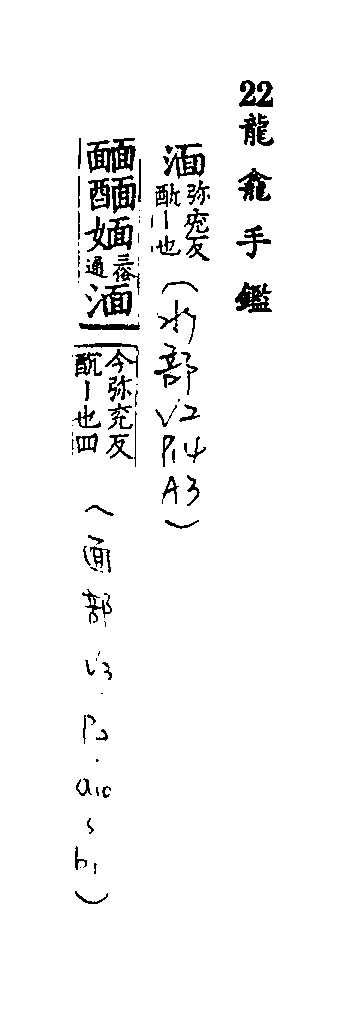 22龍龕手鑑
湎弥兖反酖一也(水部V2P14A3)
面面酉面女面三俗通湎
今弥兖反酖一也四(面部V3.P2.a10~b1)